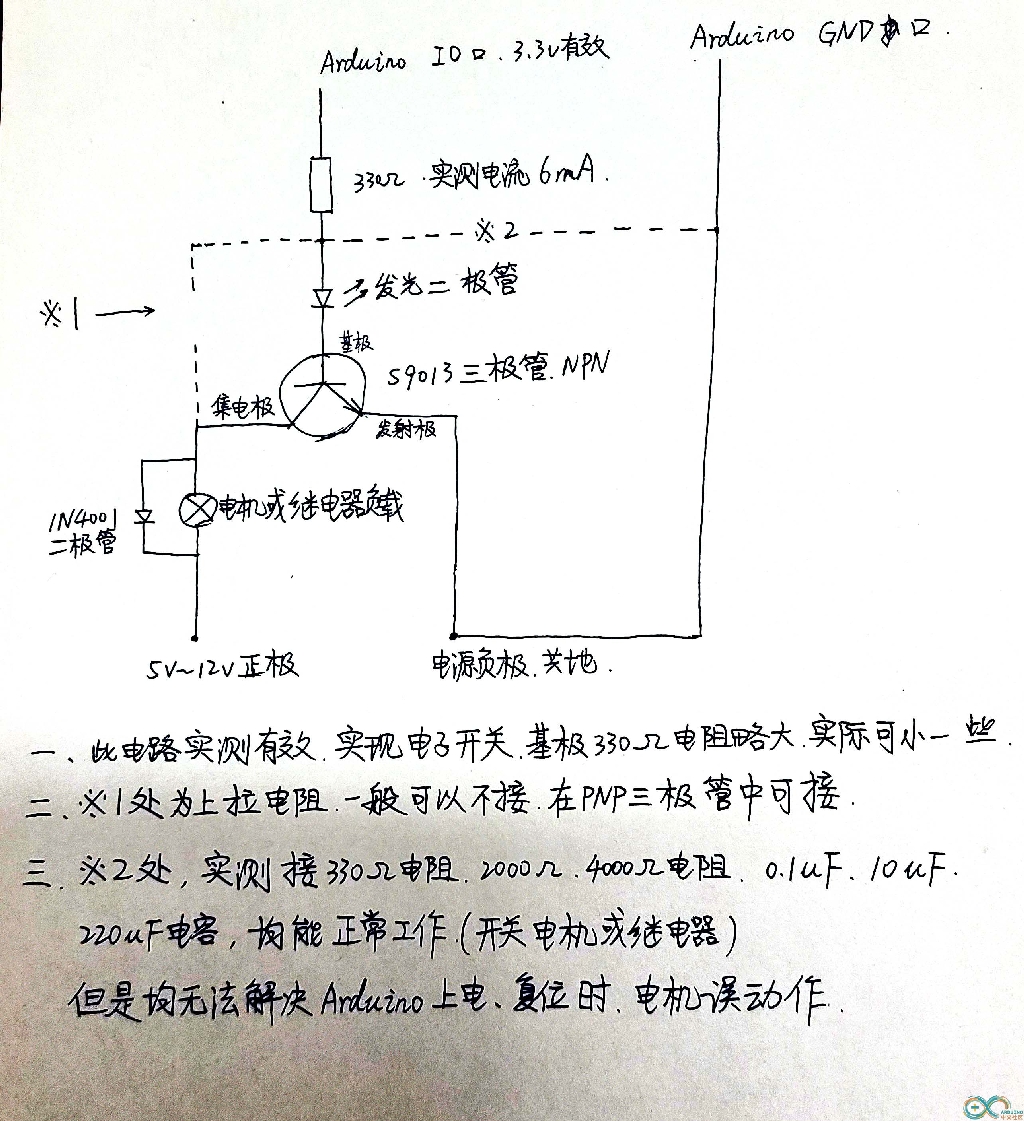 Arduino IO口.3.3v有效
Arduino GND口.
330Ω.实测电流6mA.
※2
发光二极管
※1
基极
S9013三极管.NPN
集电极
发射极
1N4001
二极管
电机或继电器负载
5V~12V正极
电源负极.共地.
一、此电路实测有效.实现电子开关.基极330Ω电阻略大.实际可小一些.
二、※1处为上拉电阻.一般可以不接.在PNP三极管中可接.
三.※2处,实测接330Ω电阻.2000Ω.4000Ω电阻、0.1uF、10uF.
220uF电容,均能正常工作.(开关电机或继电器)
但是均无法解决Arduino上电、复位时.电机误动作.
ARDUINO
中文社区